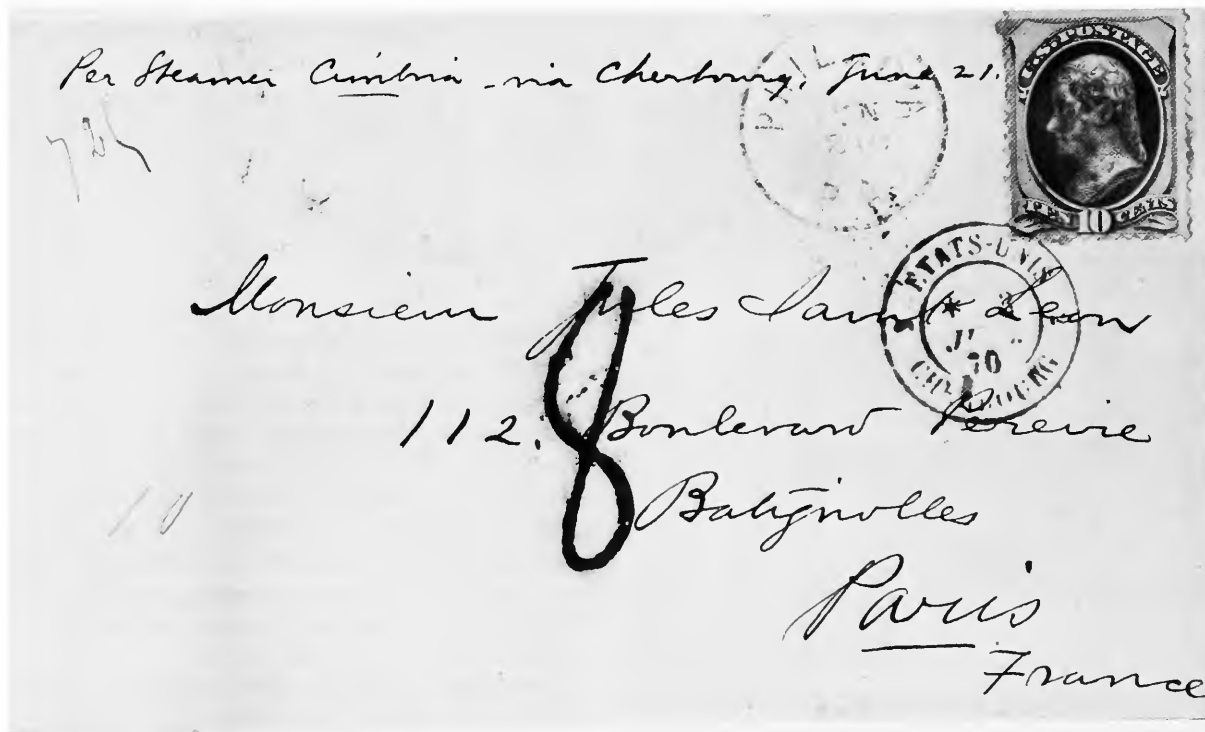 Per Steamer Cimbria via Cherbourg, June 21.
U.S. POSTAGE
TEN 10 CENTS
ETATS-UNIS
70
CHERBOURG
Monsieur Jules Saint Leon
8
112. Boulevard Pereire
Batignolles
Paris
France